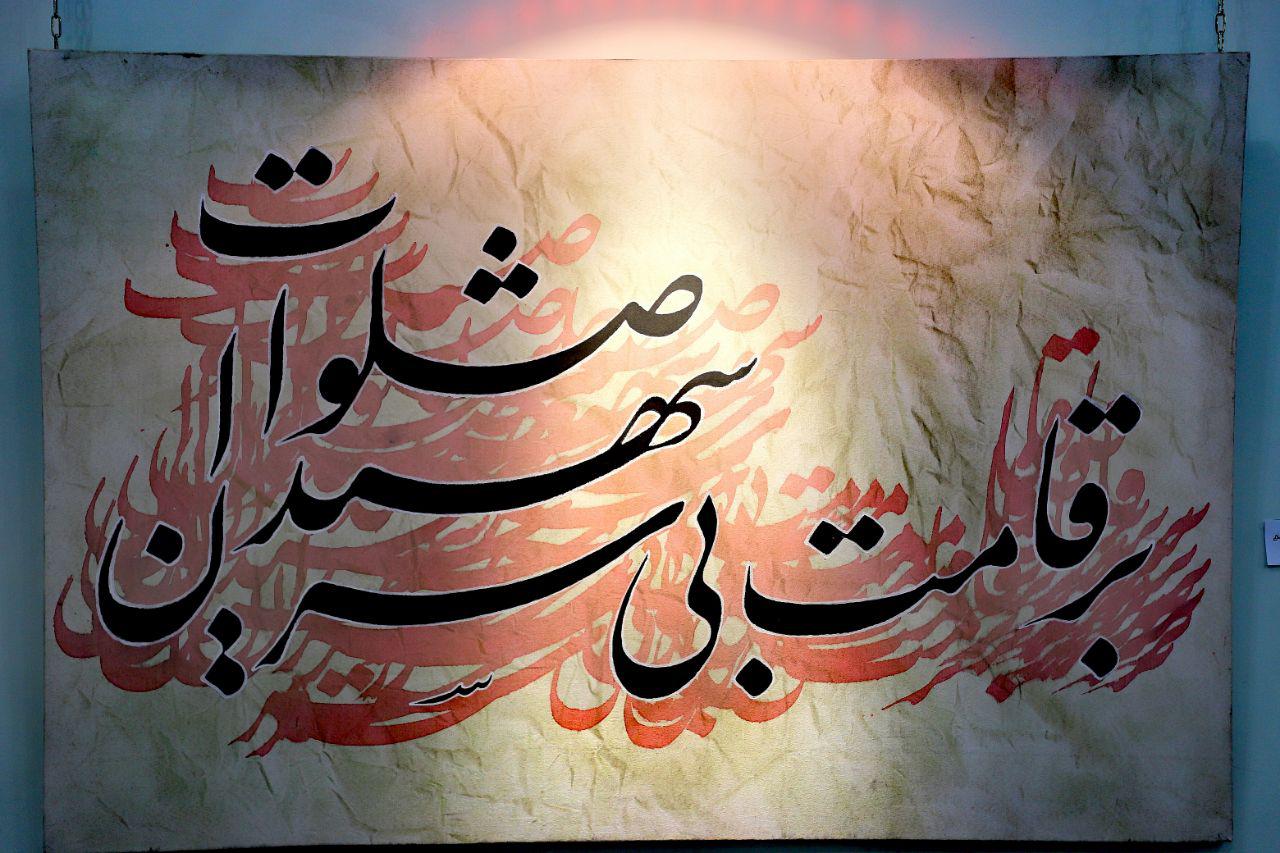 بر قامت بی سر شهیدان صلوات